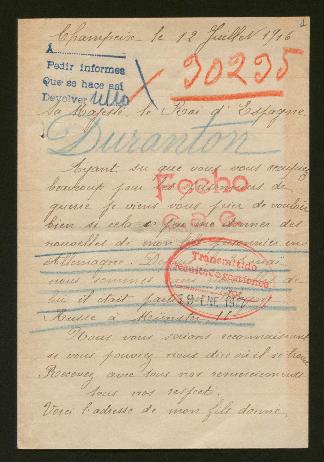 1
Champeix le 12 Juillet 1916
A
Pedir informes
Que se hace así
Devolver
90295
Sa Majesté le Roi d'Espagne
Duranton
Ayant su que vous vous occupiez
beaucoup pour les prisonniers de
guerre je viens vous prier de vouloir
bien si cela se peut me donner des
nouvelles de mon fils prisonnier en
Allemagne.
nous sommes sans nouvelles de
lui il était
Russe à Münster II
Fecho
Transmitido
19 ENE 1917
Nous vous serons reconnaissants
si vous pouvez nous dire où il se trouve
Recevez avec tous nos remerciements
tous nos respect.
Voici l'adresse de mon fils donne